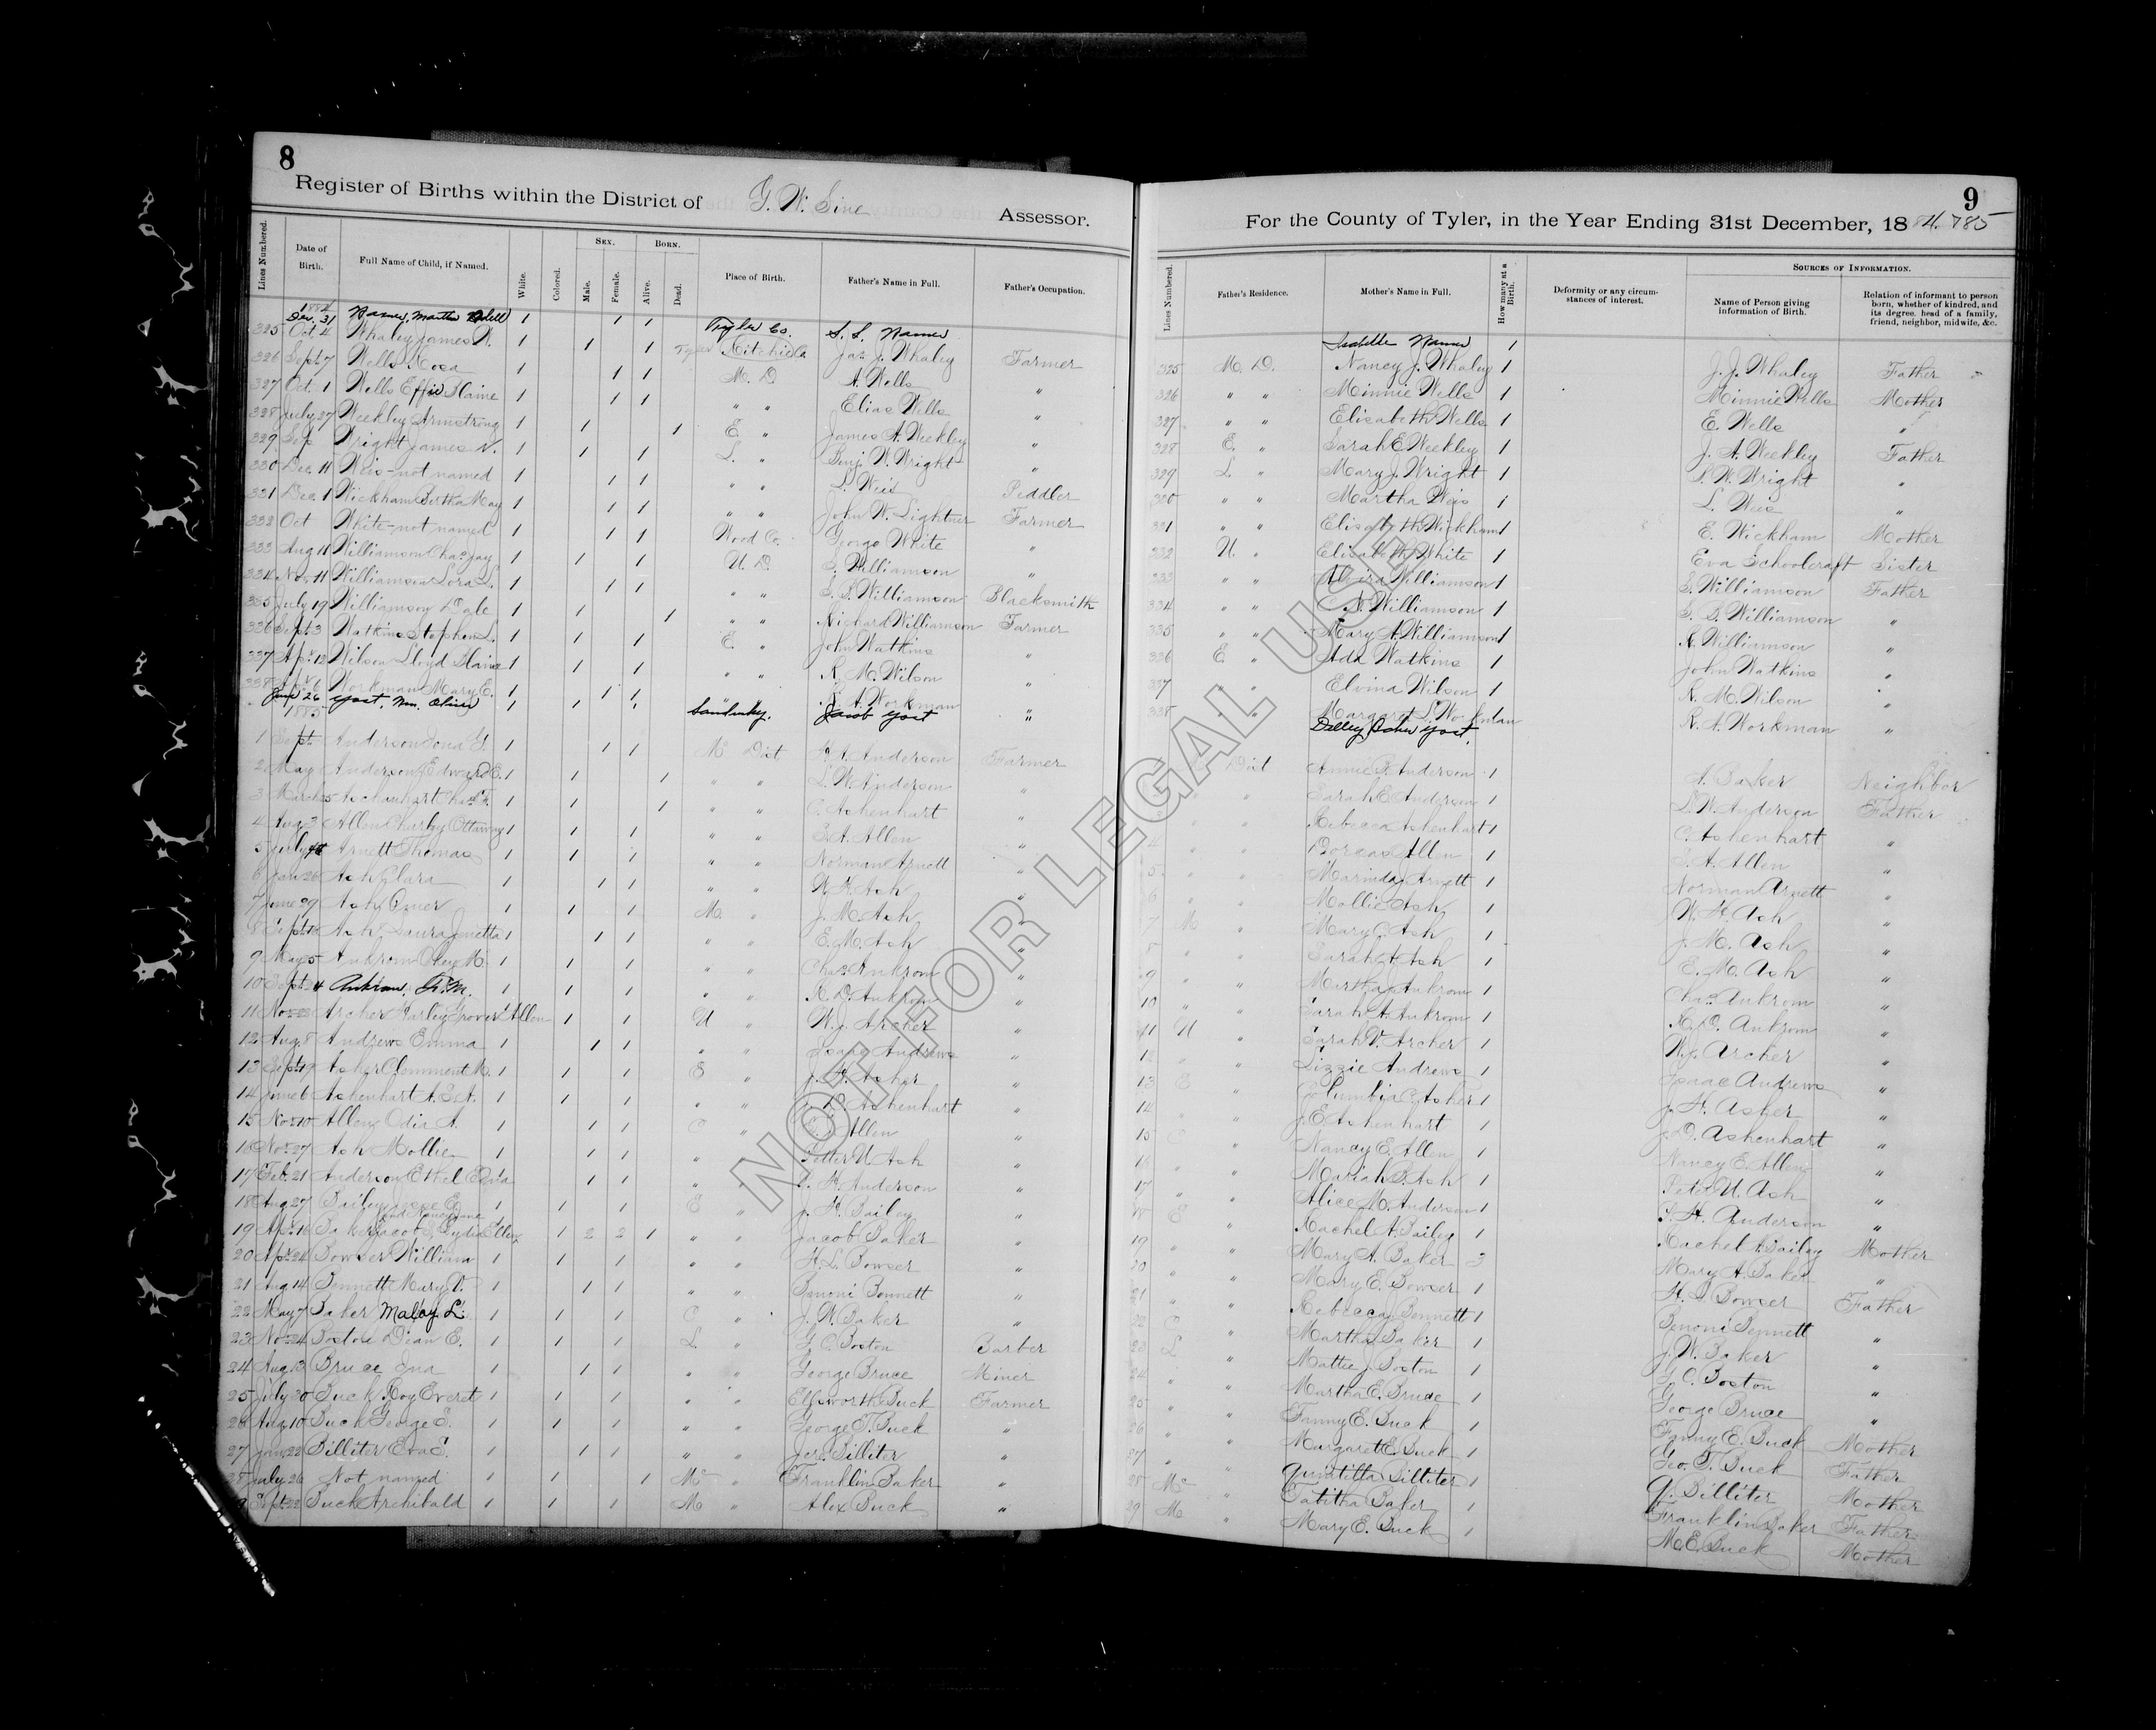 8
Register of Births within the District of G. W. Sine Assessor.
Lines Numbered. Date of Birth. Full Name of Child, if Named. White. Colored. Sex. Male. Female. Born. Alive. Dead. Place of Birth. Father's Name in Full. Father's Occupation.
1884
Dec. 31 Martha 1 1 1 Tyler Co. S. S.
325 Oct 4 Whaley James W. 1 1 1 Tyler Ritchie Co. Jas. J. Whaley Farmer
326 Sept 7 Wells Rosa 1 1 1 M. D. A. Wells "
327 Oct. 1 Wells Effie Blaine 1 1 1 " " Elias Wells "
328 July 27 Weekley Armstrong 1 1 1 E. " James A. Weekley "
329 Sep Wright James N. 1 1 1 L. " Benj. W. Wright "
330 Dec. 11 Weis - not named 1 1 1 " " L. Weis Peddler
331 Dec. 1 Wickham Bertha May 1 1 1 " " John W. Lightner Farmer
332 Oct White - not named 1 1 1 Wood Co. George White "
333 Aug 11 Williamson Chas Jay 1 1 1 U. D. S. Williamson "
334 Nov. 11 Williamson Lora L. 1 1 1 " " S. D. Williamson Blacksmith
335 July 19 Williamson Dale 1 1 1 " " Richard Williamson Farmer
336 Sept 3 Watkins Stephen L. 1 1 1 E. " John Watkins "
337 Apr. 12 Wilson Lloyd Blaine 1 1 1 " " R. M. Wilson "
338 6 Workman Mary E. 1 1 1 " " R. A. Workman "
June 26 Yost, Wm. Oliver 1 1 1 Sandusky. Jacob Yost "
1885
1 Sept Anderson Iona G. 1 1 1 Mc Dist Anderson Farmer
2 May Anderson Edward E. 1 1 1 " " L. W. Anderson "
3 March 25 Aschanhart Chas. F. 1 1 1 " " C. Ashenhart "
4 Aug 3 Allen Charley Ottaway 1 1 1 " " S. A. Allen "
5 July Arnett Thomas 1 1 1 " " Norman Arnett "
6 Jan 26 Ash Clara 1 1 1 " " W. H. Ash "
7 June 29 Ash Omer 1 1 1 M. " J. M. Ash "
8 Sept Ash Laura Jenetta 1 1 1 " " E. M. Ash "
9 May 5 Ankrom Oley M. 1 1 1 " " Chas. Ankrom "
10 Sept 24 Ankrom, F. M. 1 1 1 " " R. D. Ankrom "
11 Nov 23 Archer Harley Grover Allen 1 1 U " W. J. Archer "
12 Aug. 8 Andrews Emma 1 1 1 " " Isaac Andrews "
13 Sept 19 Asher Clemment M. 1 1 1 E " J. H. Asher "
14 June 6 Ashenhart A. S. A. 1 1 1 " " J. D. Ashenhart "
15 Nov 10 Allen Odia A. 1 1 1 C " Allen "
16 Nov 27 Ash Mollie 1 1 1 " " Petter U. Ash "
17 Feb. 21 Anderson Ethel Edna 1 1 " " S. H. Anderson "
18 Aug 27 Bailey Jesse E. 1 1 1 E " J. H. Bailey "
19 Apr. 16 Baker Jacob & Lydia Ellen and Nancy Jane 1 2 2 1 " " Jacob Baker "
20 Apr 24 Bowser William 1 1 1 " " H. L. Bowser "
21 Aug 14 Bennett Mary V. 1 1 1 " " Benoni Bennett "
22 May 7 Baker Maloy L. 1 1 1 C " J. W. Baker "
23 Nov 24 Boston Dian E. 1 1 1 L. " G. C. Boston Barber
24 Aug 13 Bruce Ina 1 1 1 " " George Bruce Miner
25 July 30 Buck Roy Everet 1 1 1 " " Ellsworth Buck Farmer
26 Aug 10 Buck George E. 1 1 1 " " George T. Buck "
27 Jan 22 Billiter Eva E. 1 1 1 " " Jere Billiter "
28 July 26 Not named 1 1 1 Mc " Franklin Baker "
9 Sept 22 Buck Archibald 1 1 1 M " Alex Buck "
9
For the County of Tyler, in the Year Ending 31st December, 1884. 785
Lines Numbered. Father's Residence. Mother's Name in Full. How many at a Birth. Deformity or any circumstances of interest. Sources of Information. Name of Person giving information of Birth. Relation of informant to person born, whether of kindred, and its degree, head of a family, friend, neighbor, midwife, &c.
Isabelle 1
325 M. D. Nancy J. Whaley 1 J. J. Whaley Father
326 " " Minnie Wells 1 Minnie Wells Mother
327 " " Elisabeth Wells 1 E. Wells "
328 E. " Sarah E. Weekley 1 J. A. Weekley Father
329 L " Mary J. Wright 1 B. W. Wright "
330 " " Martha Weis 1 L. Weis "
331 " " Elisabeth Wickham 1 E. Wickham Mother
332 U. " Elisabeth White 1 Eva Schoolcraft Sister
333 " " Alvira Williamson 1 S. Williamson Father
334 " " C. N. Williamson 1 S. D. Williamson "
335 " " Mary A. Williamson 1 R. Williamson "
336 E. " Ada Watkins 1 John Watkins "
337 " " Elvina Wilson 1 R. M. Wilson "
338 " " Margaret L. Workman R. A. Workman "
Dilley Baker Yost.
Dist Annie B. Anderson 1 A. Baker Neighbor
" Sarah E. Anderson 1 L. W. Anderson Father
" Rebecca Ashenhart 1 C. Ashenhart "
4 " Dorcas Allen 1 S. A. Allen "
5 " " Marinda Arnett 1 Norman Arnett "
6 " " Mollie Ash 1 W. H. Ash "
7 M " Mary C. Ash 1 J. M. Ash "
8 " " Sarah A. Ash 1 E. M. Ash "
9 " " Martha J. Ankrom 1 Chas. Ankrom "
10 " " Sarah A. Ankrom 1 R. D. Ankrom "
11 U " Sarah V. Archer 1 W. J. Archer "
12 " " Lizzie Andrews 1 Isaac Andrews "
13 E " Columbia C. Asher 1 J. H. Asher "
14 " " J. E. Ashenhart 1 J. D. Ashenhart "
15 C " Nancy E. Allen 1 Nancy E. Allen "
16 " " Mariah B. Ash 1 Peter U. Ash "
17 " " Alice M. Anderson 1 S. H. Anderson "
18 E " Rachel A. Bailey 1 Rachel A. Bailey Mother
19 " " Mary A. Baker 3 Mary A. Baker "
20 " " Mary E. Bowser 1 H. L. Bowser Father
21 " " Rebecca Bennett 1 Benoni Bennett "
22 C " Martha Baker 1 J. W. Baker "
23 L " Mattie J. Boston 1 G. C. Boston "
24 " " Martha E. Bruce 1 George Bruce "
25 " " Fanny E. Buck 1 Fanny E. Buck Mother
26 " " Margaret E. Buck 1 Geo. T. Buck Father
27 " " Quintilla Billiter 1 Q. Billiter Mother
28 Mc " Tabitha Baker 1 Franklin Baker Father
29 M " Mary E. Buck 1 M. E. Buck Mother
NOT FOR LEGAL USE